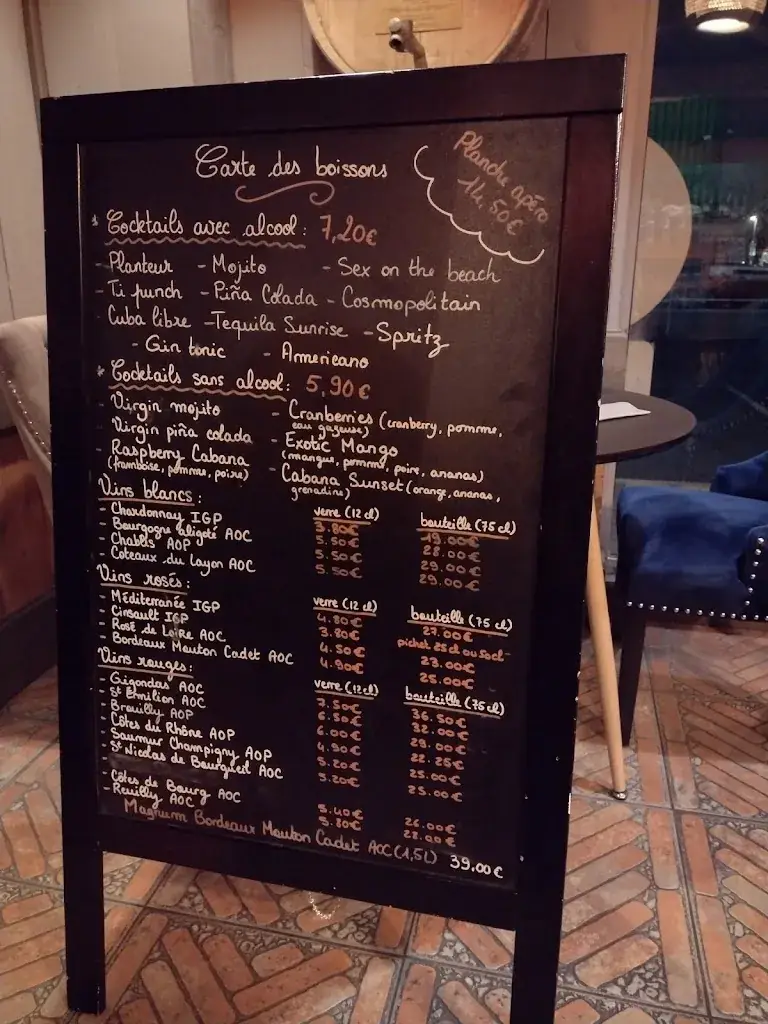 Carte des boissons
Planche apéro
14,50€
* Cocktails avec alcool : 7,20€
- Planteur - Mojito - Sex on the beach
- Ti punch - Piña Colada - Cosmopolitain
- Cuba libre - Tequila Sunrise - Spritz
- Gin tonic - Americano
* Cocktails sans alcool : 5,90€
- Virgin mojito - Cranberries (cranberry, pomme,
eau gazeuse)
- Virgin piña colada - Exotic Mango
(mangue, pomme, poire, ananas)
- Raspberry Cabana - Cabana Sunset (orange, ananas,
(framboise, pomme, poire) grenadine)
Vins blancs : verre (12 cl) bouteille (75 cl)
- Chardonnay IGP 3.80€ 19.00€
- Bourgogne aligoté AOC 5.50€ 28.00€
- Chablis AOP 5.50€ 29.00€
- Coteaux du Layon AOC 5.50€ 29.00€
Vins rosés : verre (12 cl) bouteille (75 cl)
- Méditerranée IGP 4.80€ 27.00€
- Cinsault IGP 3.80€ pichet 25cl ou 50cl-
- Rosé de Loire AOC 4.50€ 23.00€
- Bordeaux Mouton Cadet AOC 4.90€ 25.00€
Vins rouges : verre (12cl) bouteille (75 cl)
- Gigondas AOC 7.50€ 36.50€
- St Emilion AOC 6.50€ 32.00€
- Brouilly AOP 6.00€ 29.00€
- Côtes du Rhône AOP 4.90€ 22.25€
- Saumur Champigny AOP 5.20€ 25.00€
- St Nicolas de Bourgueil AOC 5.20€ 25.00€
- Côtes de Bourg AOC 5.40€ 26.00€
- Reuilly AOC 5.80€ 28.00€
Magnum Bordeaux Mouton Cadet AOC (1,5L) 39,00€